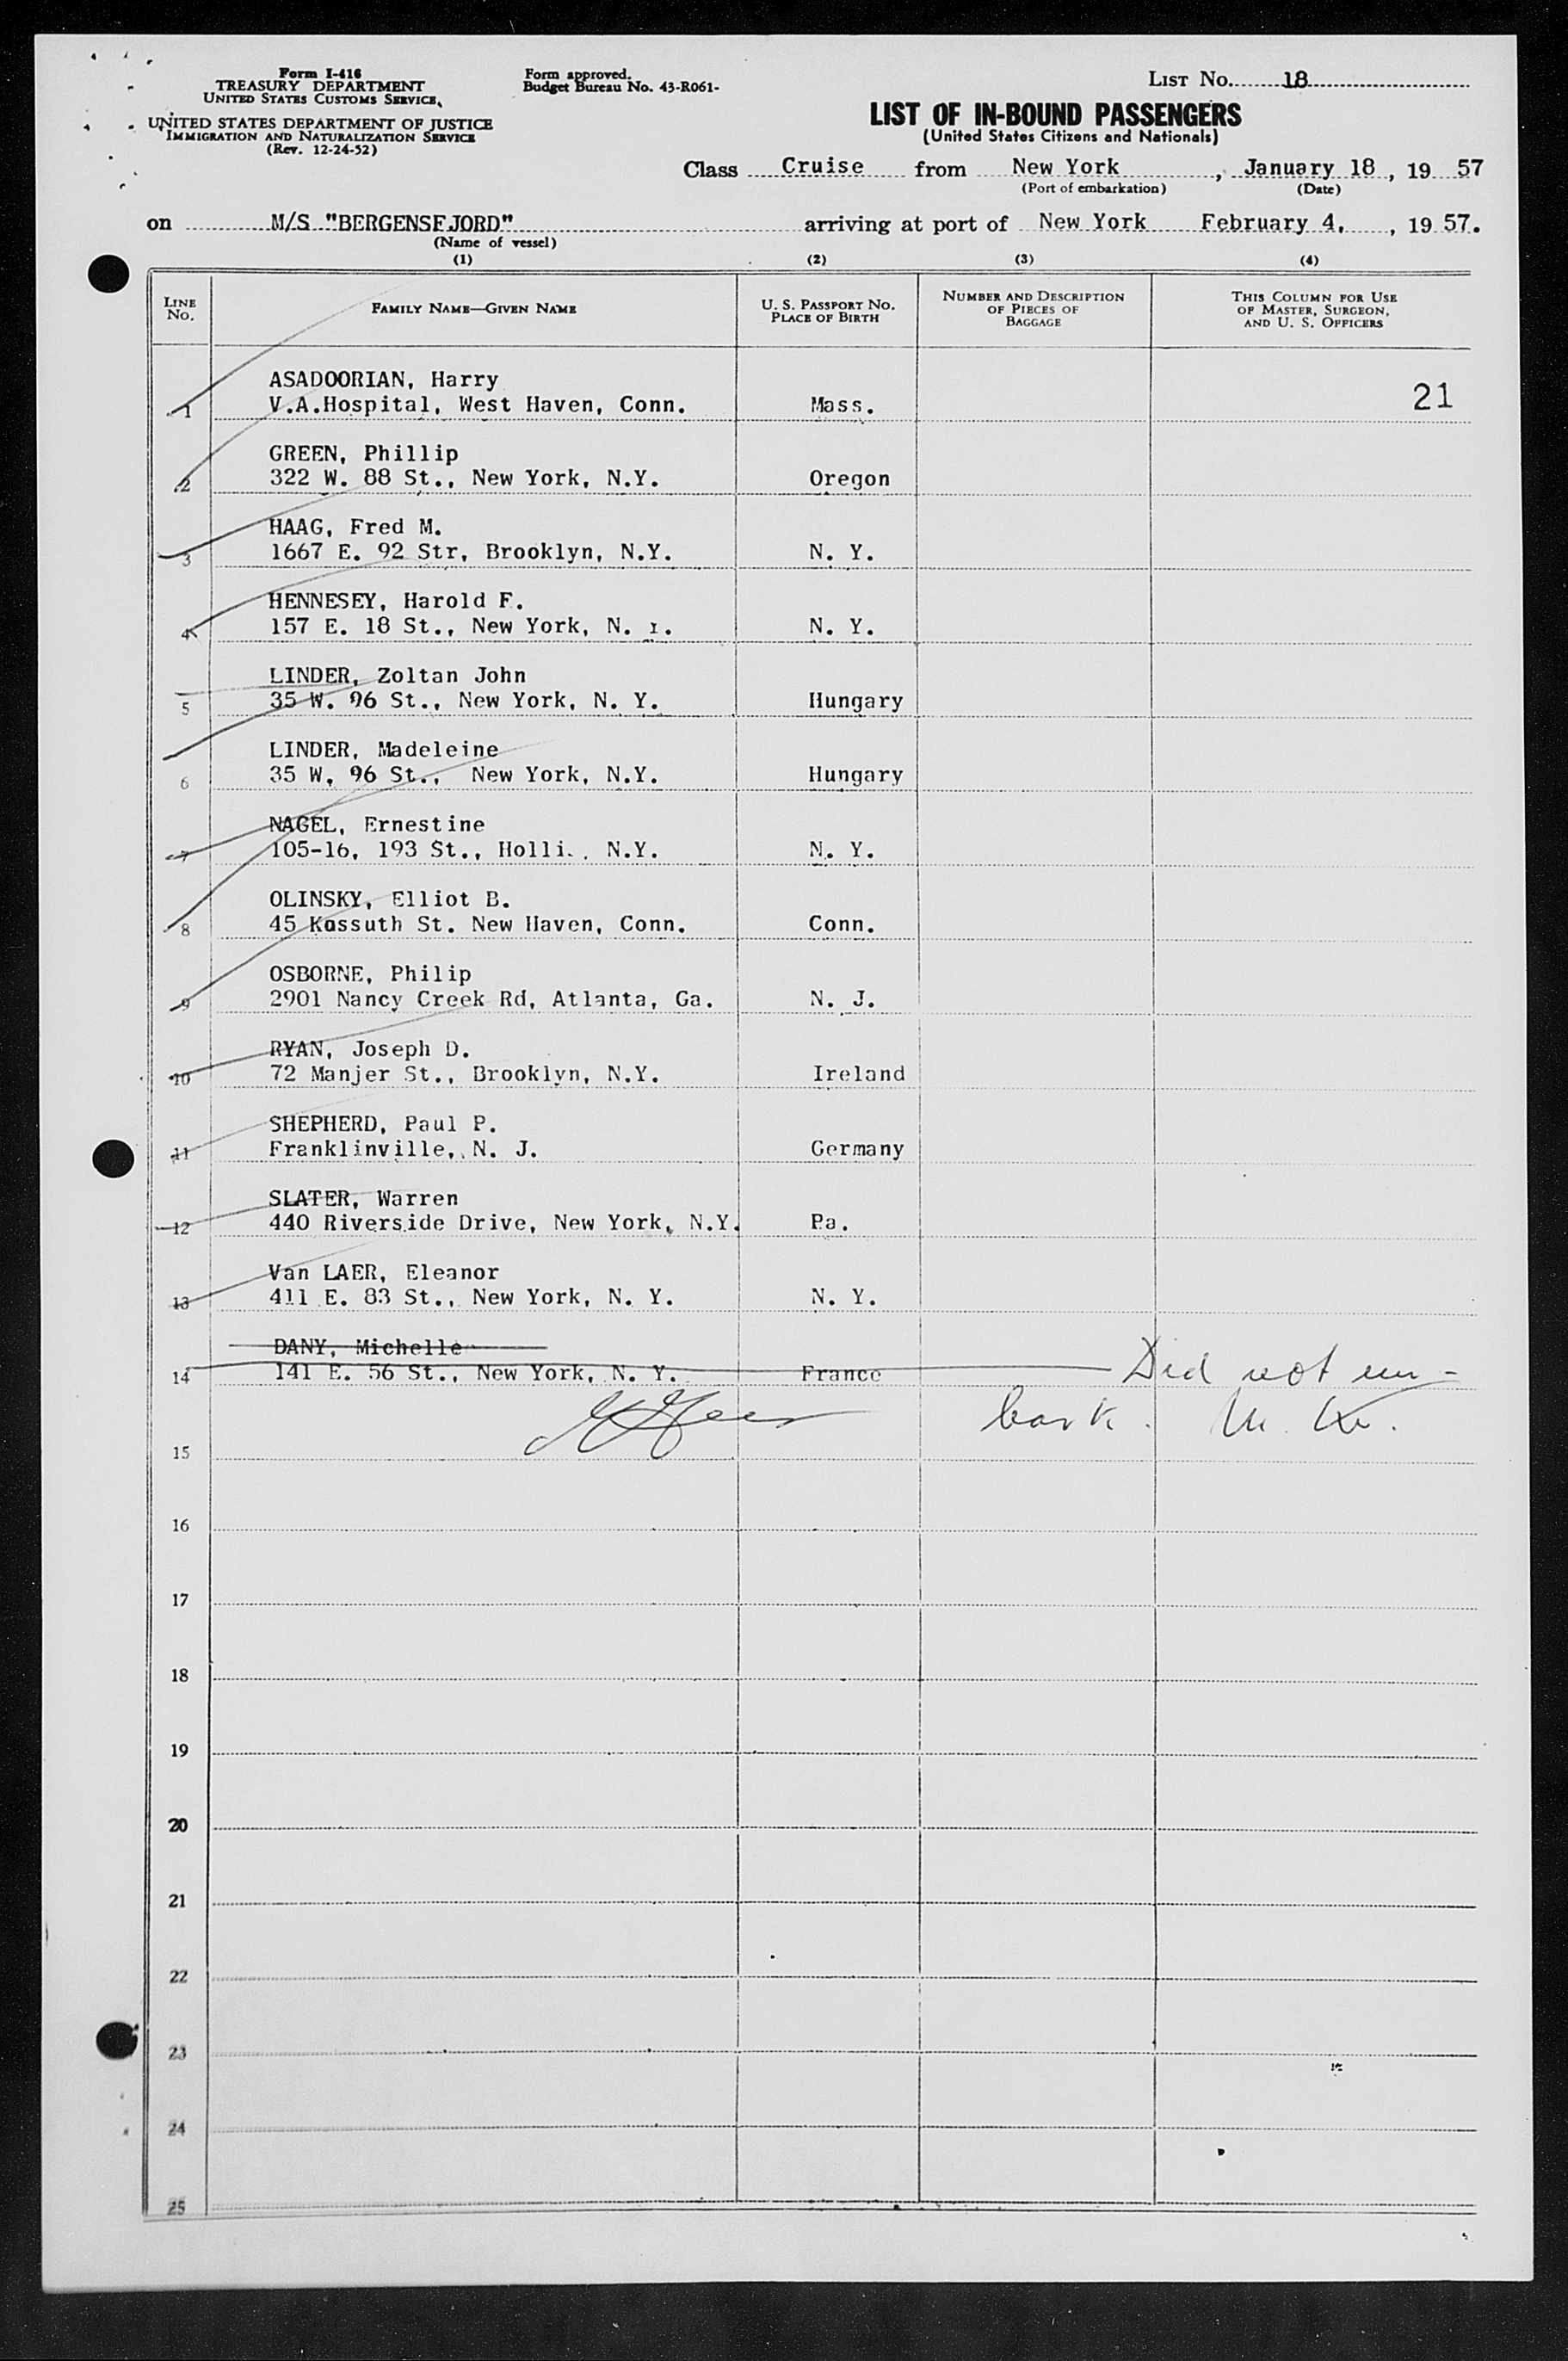 Form I-416
TREASURY DEPARTMENT
UNITED STATES CUSTOMS SERVICE,
UNITED STATES DEPARTMENT OF JUSTICE
IMMIGRATION AND NATURALIZATION SERVICE
(Rev. 12-24-52)
Form approved.
Budget Bureau No. 43-R061-
LIST No. 18
LIST OF IN-BOUND PASSENGERS
(United States Citizens and Nationals)
Class Cruise from New York, January 18, 19 57
(Port of embarkation) (Date)
on M/S "BERGENSFJORD" arriving at port of New York February 4, , 19 57.
(Name of vessel)
(1) (2) (3) (4)
LINE No. FAMILY NAME—GIVEN NAME U. S. PASSPORT NO. PLACE OF BIRTH NUMBER AND DESCRIPTION OF PIECES OF BAGGAGE THIS COLUMN FOR USE OF MASTER, SURGEON, AND U. S. OFFICERS
ASADOORIAN, Harry
1 V.A.Hospital, West Haven, Conn. Mass. 21
GREEN, Phillip
2 322 W. 88 St., New York, N.Y. Oregon
HAAG, Fred M.
3 1667 E. 92 Str, Brooklyn, N.Y. N. Y.
HENNESEY, Harold F.
4 157 E. 18 St., New York, N. Y. N. Y.
LINDER, Zoltan John
5 35 W. 96 St., New York, N. Y. Hungary
LINDER, Madeleine
6 35 W, 96 St., New York, N.Y. Hungary
NAGEL, Ernestine
7 105-16, 193 St., Holli. , N.Y. N. Y.
OLINSKY, Elliot B.
8 45 Kossuth St. New Haven, Conn. Conn.
OSBORNE, Philip
9 2901 Nancy Creek Rd, Atlanta, Ga. N. J.
RYAN, Joseph D.
10 72 Manjer St., Brooklyn, N.Y. Ireland
SHEPHERD, Paul P.
11 Franklinville, N. J. Germany
SLATER, Warren
12 440 Riverside Drive, New York, N.Y. Pa.
Van LAER, Eleanor
13 411 E. 83 St., New York, N. Y. N. Y.
DANY, Michelle
14 141 E. 56 St., New York, N. Y. France Did not em-
bark.
15
16
17
18
19
20
21
22
23
24
25